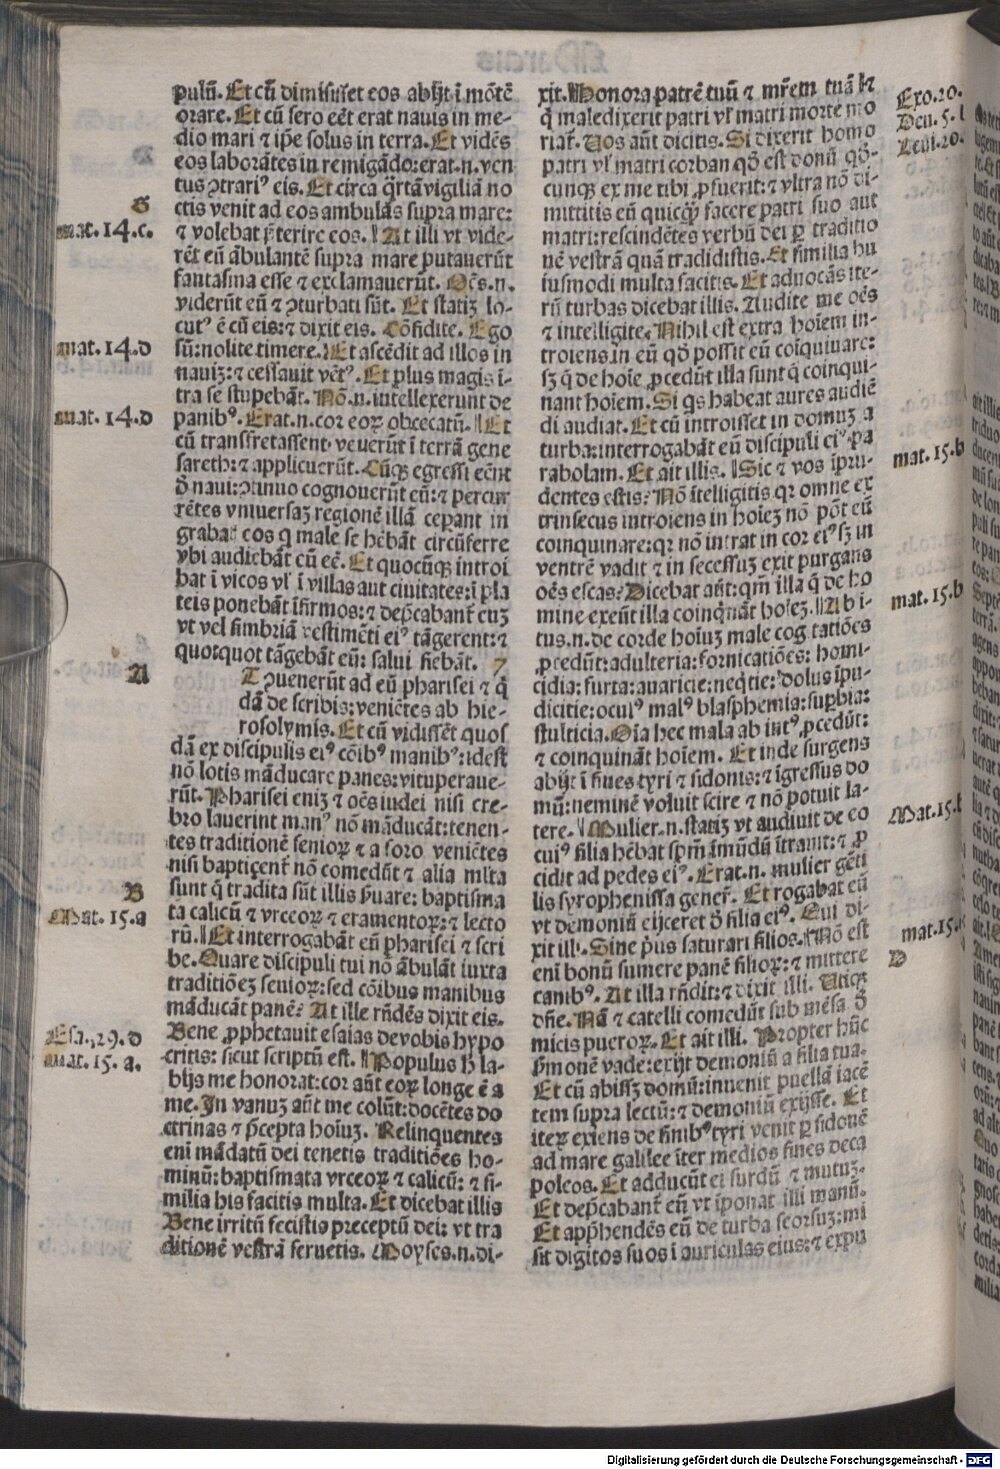 pulū. Et cū dimisisset eos abijt ī mōtē
orare. Et cū sero eēt erat nauis in me-
dio mari ⁊ ip̄e solus in terra. Et vidēs
eos laborātes in remigādo: erat .n. ven
tus ꝯtrariꝰ eis. Et circa q̄rtā vigiliā no
ctis venit ad eos ambulās supra mare:
⁊ volebat p̄terire eos. At illi vt vide-
rēt eū ābulantē supra mare putauerūt
fantasma esse ⁊ exclamauerūt. Oēs .n.
viderūt eū ⁊ ꝯturbati sūt. Et statiꝫ lo-
cutꝰ ē cū eis: ⁊ dixit eis. Cōfidite. Ego
sū: nolite timere. Et ascēdit ad illos in
nauiꝫ: ⁊ cessauit vētꝰ. Et plus magis ī-
tra se stupebāt. Nō .n. intellexerunt de
panibꝰ. Erat .n. cor eoꝝ obcecatū. Et
cū transfretassent veuerūt ī terrā gene
sareth: ⁊ applicuerūt. Cūqꝫ egressi eēnt
d̄ naui: ꝯtinuo cognouerūt eū: ⁊ percur
rētes vniuersaꝫ regionē illā ceperūt in
grabatis eos q male se hēbāt circūferre
vbi audiebāt eū eē. Et quocūqꝫ introi
bat ī vicos vl̓ ī villas aut ciuitates: ī pla
teis ponebāt īfirmos: ⁊ dep̄cabant̄ euꝫ
vt vel fimbriā vestimēti eiꝰ tāgerent: ⁊
quotquot tāgebāt eū: salui fiebāt. 7
T ꝯuenerūt ad eū pharisei ⁊ q̄
dā de scribis: veniētes ab hie-
rosolymis. Et cū vidissēt quos
dā ex discipulis eiꝰ cōibꝰ manibꝰ: idest
nō lotis māducare panes: vituperaue-
rūt. Pharisei eniꝫ ⁊ oēs iudei nisi cre-
bro lauerint manꝰ nō māducāt: tenen-
tes traditionē senioꝝ ⁊ a foro veniētes
nisi bapticent̄ nō comedūt ⁊ alia mlta
sunt q̄ tradita sūt illis s̄uare: baptisma
ta calicū ⁊ vrceoꝝ ⁊ eramentoꝝ: ⁊ lecto
rū. Et interrogabāt eū pharisei ⁊ scri
be. Quare discipuli tui nō ābulāt iuxta
traditiōeꝫ senioꝝ: sed cōibus manibus
māducāt panē? At ille rn̄dēs dixit eis.
Bene ꝓphetauit esaias de vobis hypo
critis: sicut scriptū est. Populus h̄ la-
bijs me honorat: cor aūt eoꝝ longe ē a
me. In vanuꝫ aūt me colūt: docētes do
ctrinas ⁊ p̄cepta hoīuꝫ. Relinquentes
eni mādatū dei tenetis traditiōes ho-
minū: baptismata vrceoꝝ ⁊ calicū: ⁊ si-
milia his facitis multa. Et dicebat illis
Bene irritū fecistis preceptū dei: vt tra
ditionē vestrā seruetis. Moyses .n. di-
G
mat. 14. c.
mat. 14. d
mat. 14. d
A
B
Mat. 15. a
Esa. 29. d
mat. 15. a.
xit. Honora patrē tuū ⁊ mr̄em tuā ⁊
q̄ maledixerit patri vl̓ matri morte mo
riat̄. Uos aūt dicitis. Si dixerit homo
patri vl̓ matri corban qd̄ est donū qd̄-
cunqꝫ ex me tibi ꝓfuerit: ⁊ vltra nō di-
mittitis eū quicq̄ꝫ facere patri suo aut
matri: rescindētes verbū dei ꝑ traditio
nē vestrā quā tradidistis. Et similia hu
iusmodi multa facitis. Et aduocās ite-
rū turbas dicebat illis. Audite me oēs
⁊ intelligite. Nihil est extra hoīem in-
troiens in eū qd̄ possit eū coīquinare:
sꝫ q̄ de hoīe ꝓcedūt illa sunt q̄ coinqui-
nant hoīem. Si qs habeat aures audiē
di audiat. Et cū introisset in domuꝫ a
turba: interrogabāt eū discipuli eiꝰ pa
rabolam. Et ait illis. Sic ⁊ vos īpru-
dentes estis? Nō ītelligitis qꝛ omne ex
trinsecus introiens in hoīeꝫ nō pōt eū
coinquinare: qꝛ nō intrat in cor eiꝰ sꝫ in
ventrē vadit ⁊ in secessuꝫ exit purgans
oēs escas? Dicebat aūt: qm̄ illa q̄ de ho
mine exeūt illa coinq̄nāt hoīeꝫ. Ab ī-
tus .n. de corde hoīuꝫ male cogitatiōes
ꝓcedūt: adulteria: fornicatiōes: homi-
cidia: furta: auaricie: neq̄tie: dolus īpu-
dicitie: oculꝰ malꝰ blasphemia: suꝑbia:
stulticia. Oīa hec mala ab intꝰ ꝓcedūt:
⁊ coinquināt hoīem. Et inde surgens
abijt ī fines tyri ⁊ sidonis: ⁊ īgressus do
mū: neminē voluit scire ⁊ nō potuit la-
tere. Mulier .n. statiꝫ vt audiuit de eo
cuiꝰ filia hēbat spm̄ īmūdū ītrauit: ⁊ ꝓ
cidit ad pedes eiꝰ. Erat .n. mulier gēti
lis syrophenissa gener̄. Et rogabat eū
vt demoniū eijceret d̄ filia eiꝰ. Qui di-
xit illi. Sine p̄us saturari filios. Nō est
eni bonū sumere panē filioꝝ: ⁊ mittere
canibꝰ. At illa rn̄dit: ⁊ dixit illi. Utiqꝫ
dn̄e. Nā ⁊ catelli comedūt sub mēsa d̄
micis pueroꝝ. Et ait illi. Propter hūc
s̄monē vade: exijt demoniū a filia tua.
Et cū abissꝫ domū: inuenit puellā iacē
tem supra lectū: ⁊ demoniū exijsse. Et
iteꝝ exiens de finibꝰ tyri venit ꝑ sidonē
ad mare galilee īter medios fines deca
poleos. Et adducūt ei surdū ⁊ mutuꝫ.
Et dep̄cabant̄ eū vt īponat illi manū.
Et app̄hendēs eū de turba seorsuꝫ: mi
sit digitos suos ī auriculas eius: ⁊ expu
Exo. 20.
Deu. 5.
Leui. 20.
mat. 15. b
mat. 15. b
Mat. 15.
mat. 15.
D
Digitalisierung gefördert durch die Deutsche Forschungsgemeinschaft - DFG